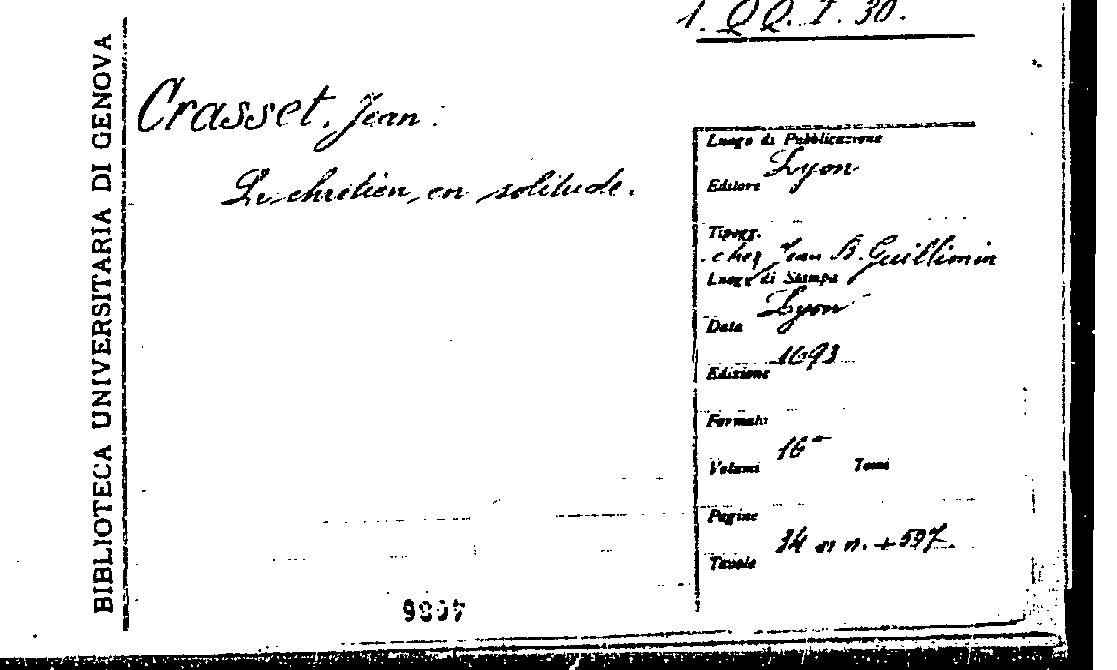 1. QQ. I. 30.
BIBLIOTECA UNIVERSITARIA DI GENOVA
Crasset, Jean.
Le chrétien en solitude.
Luogo di Pubblicazione
Lyon
Editore
Tipogr.
chez Jean B. Guillimin
Luogo di Stampa
Lyon
Data
1693
Edizione
Formato
16º
Volumi Tomi
Pagine
34 n n. + 597
Tavole